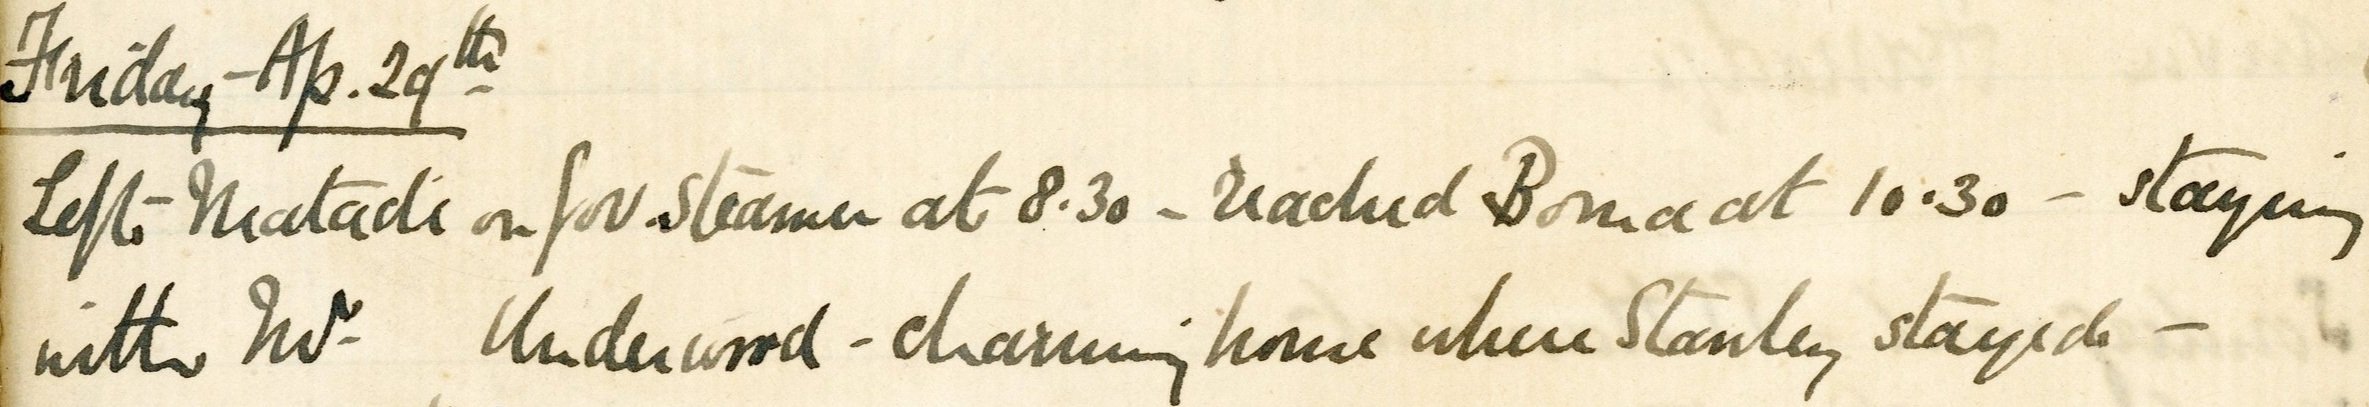 Friday - Ap. 29th
Left Matadi on Gov. Steamer at 8.30 - reached Boma at 10.30 - staying
with Mr Underwood - charming house where Stanley stayed -